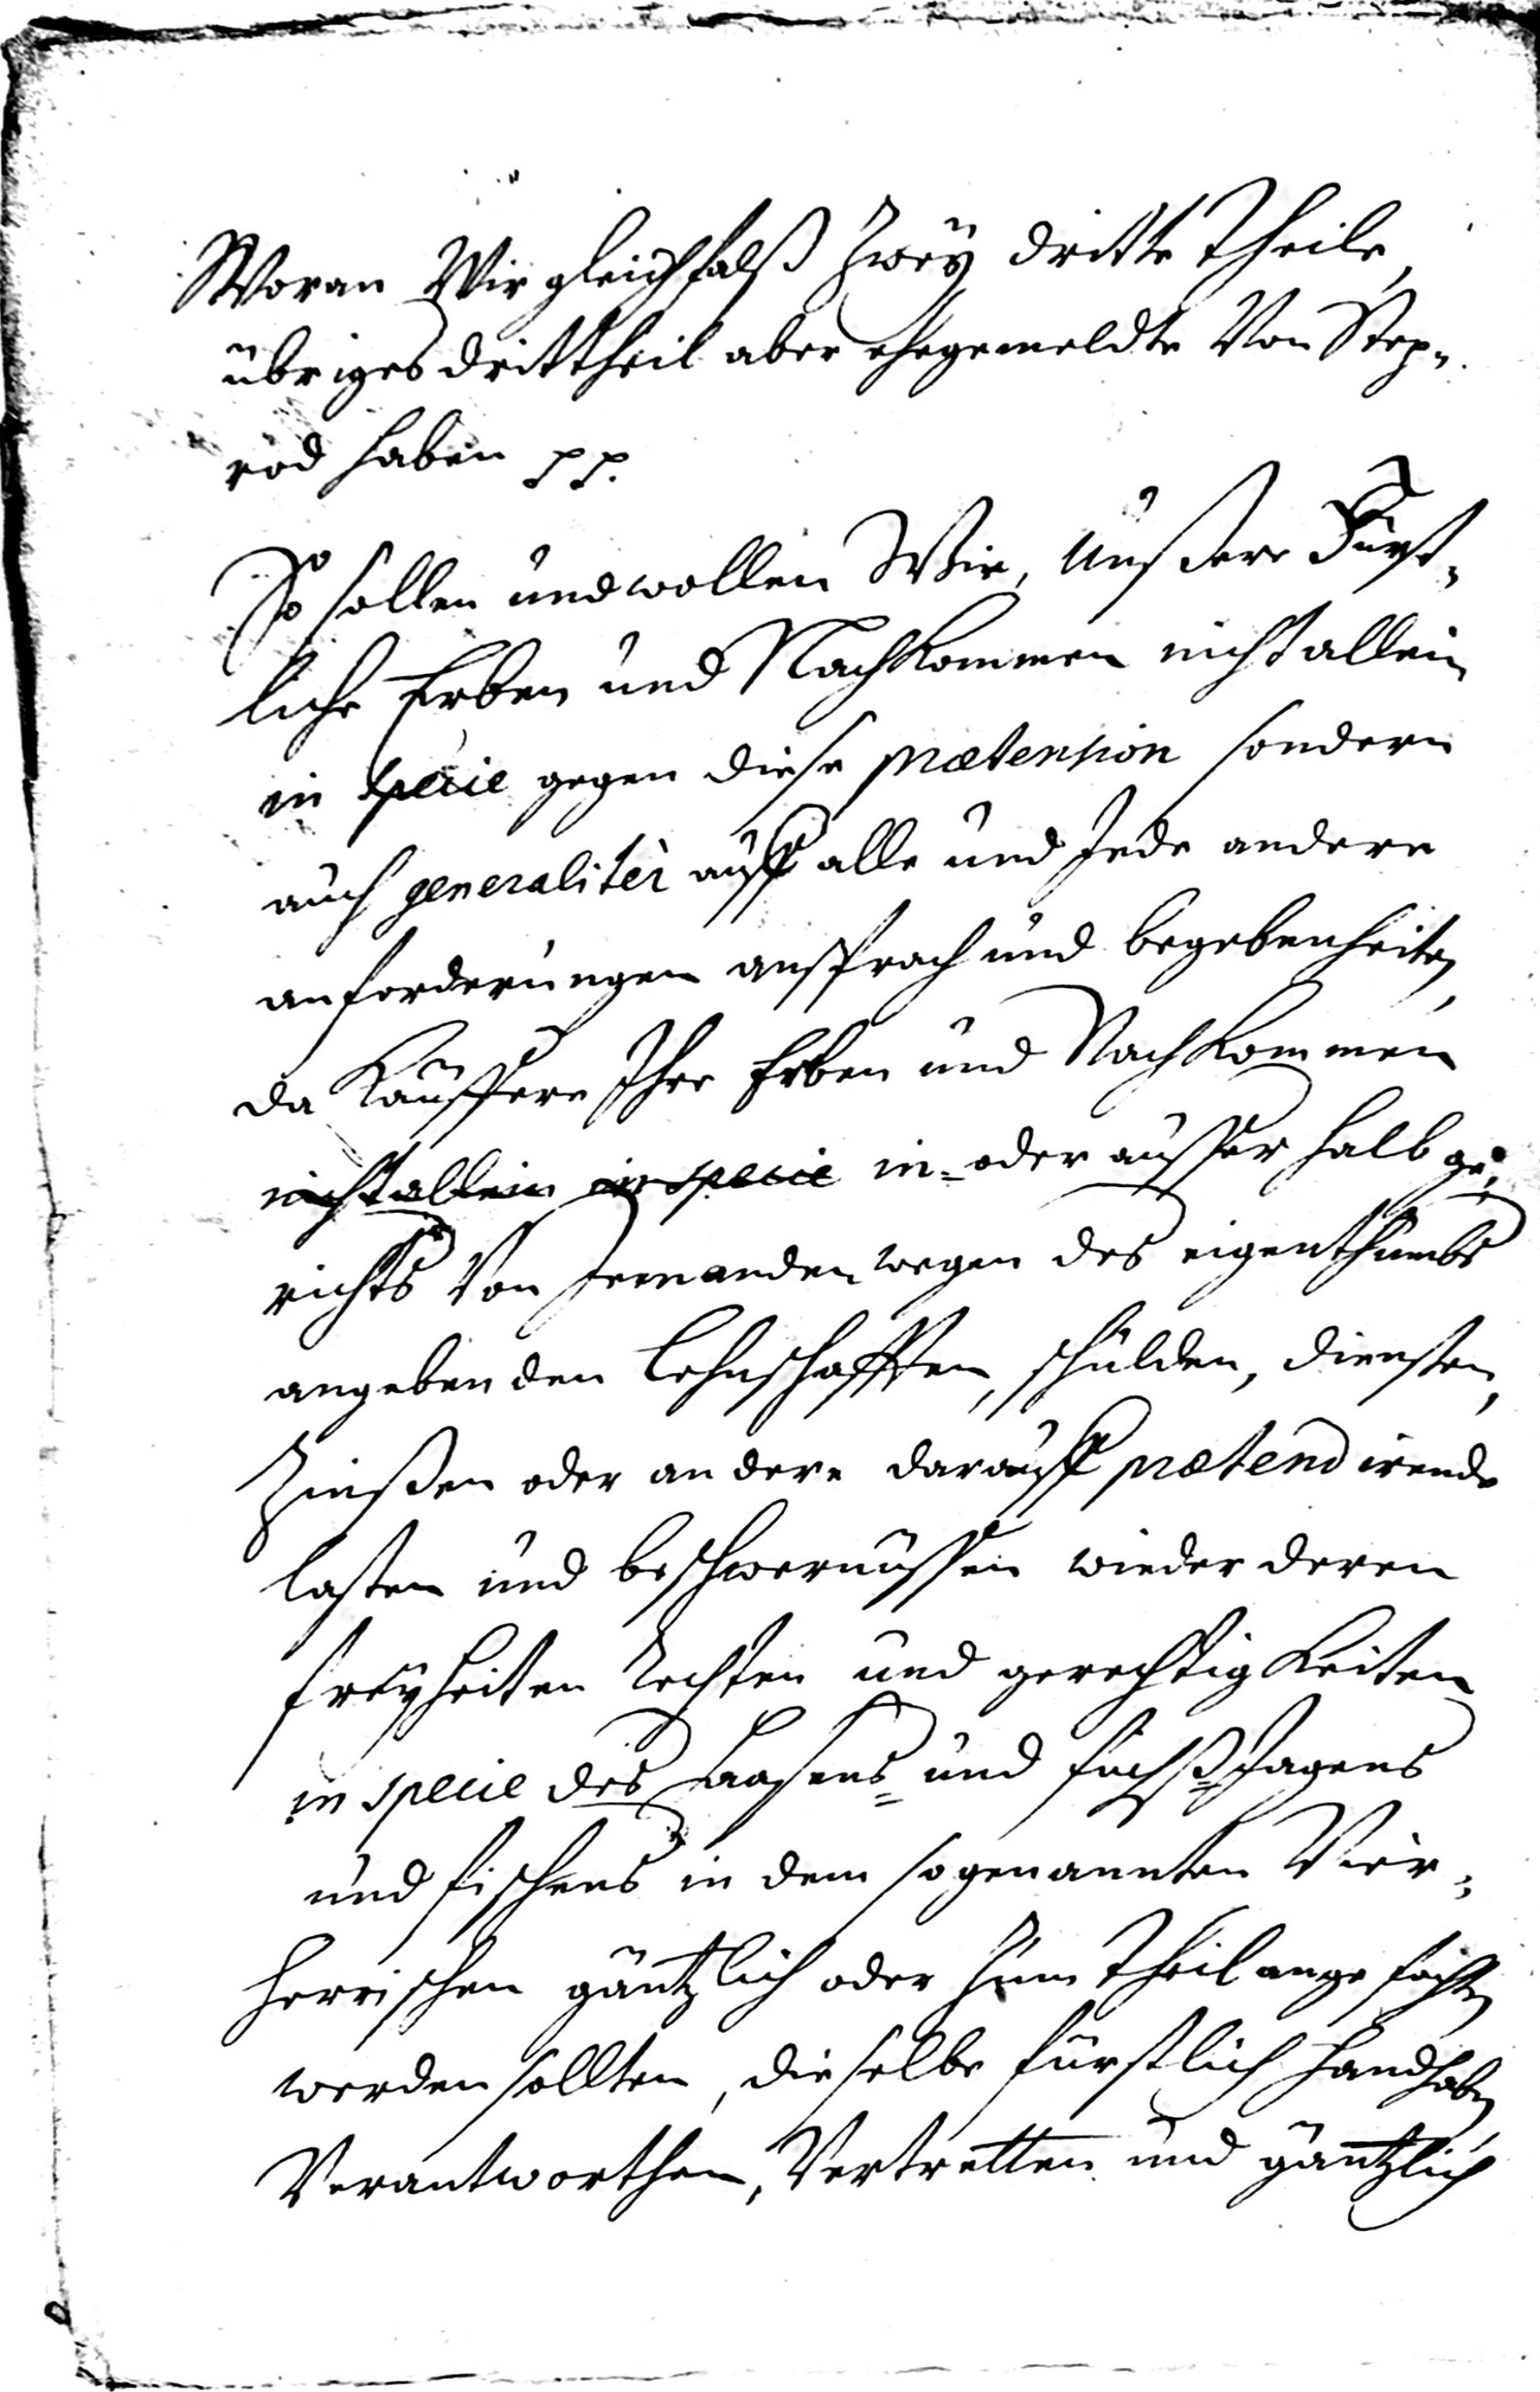 Woran Wir gleichfalß zwey dritte Theile,
übriges drittheil aber ehegemeldte Von Step¬
rod haben pp.
So sollen und wollen Wir, Unßere Fürst¬
liche Erben und Nachkommen nicht allein
in specie gegen diese prætension sondern
auch generaliter auff alle und Jede andere
anforderungen ansprach und begebenheiten,
da Käuffere Ihre Erben und Nachkommen
nicht allein in specie in- oder ausser halb ge¬
richts Von Jemanden wegen des eigenthumbs
angebenden Lehnschafften, schulden, diensten,
Zinßen oder andere darauff prætendirende
lasten und beschwernüssen wieder deren
freyheiten Rechten und gerechtigkeiten
in specie des Haasens- und fuchß-Jagens
und fischens in dem sogenannten Vier¬
herrischen gäntzlich oder zum Theil angefochten
werden sollten, dieselbe fürstlich handhaben
Verantworthen, Vertretten und gäntzlich